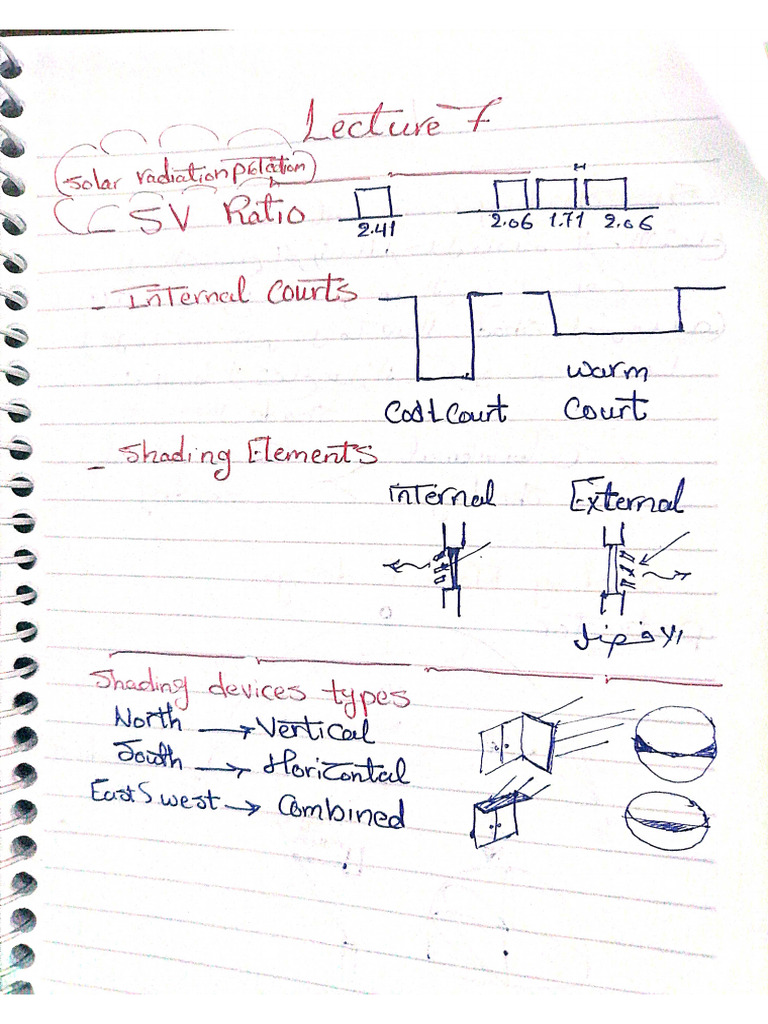 Lecture 7
Solar radiation protection
SV Ratio
2.41
2.06 1.71 2.06
- Internal Courts
Cool Court
warm
Court
- Shading Elements
internal
External
الافضل
Shading devices types
North → Vertical
South → Horizontal
East & west → Combined